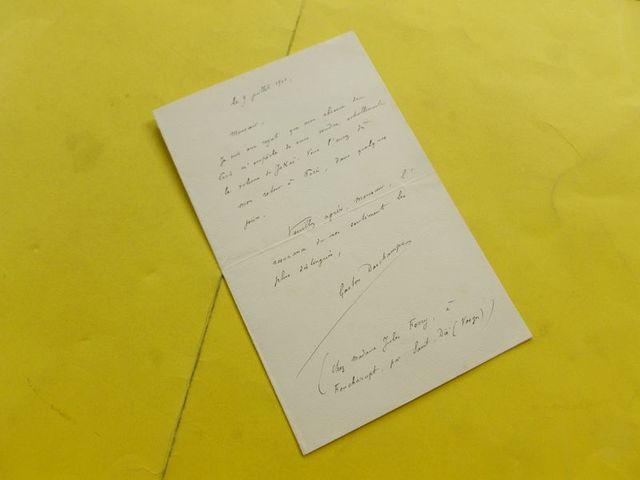 le 9 juillet
Monsieur,
Je vois avec regret que mon absence de
Paris m'empêche de vous rendre actuellement
le volume de Jokai. Vous l'aurez dès
mon retour à Paris, dans quelques
jours.
Veuillez agréer, Monsieur, l'
assurance de mes sentiments les
plus distingués,
Gaston Deschamps
(Chez Madame Jules Ferry, à
Foucharupt, par Saint-Dié (Vosges))